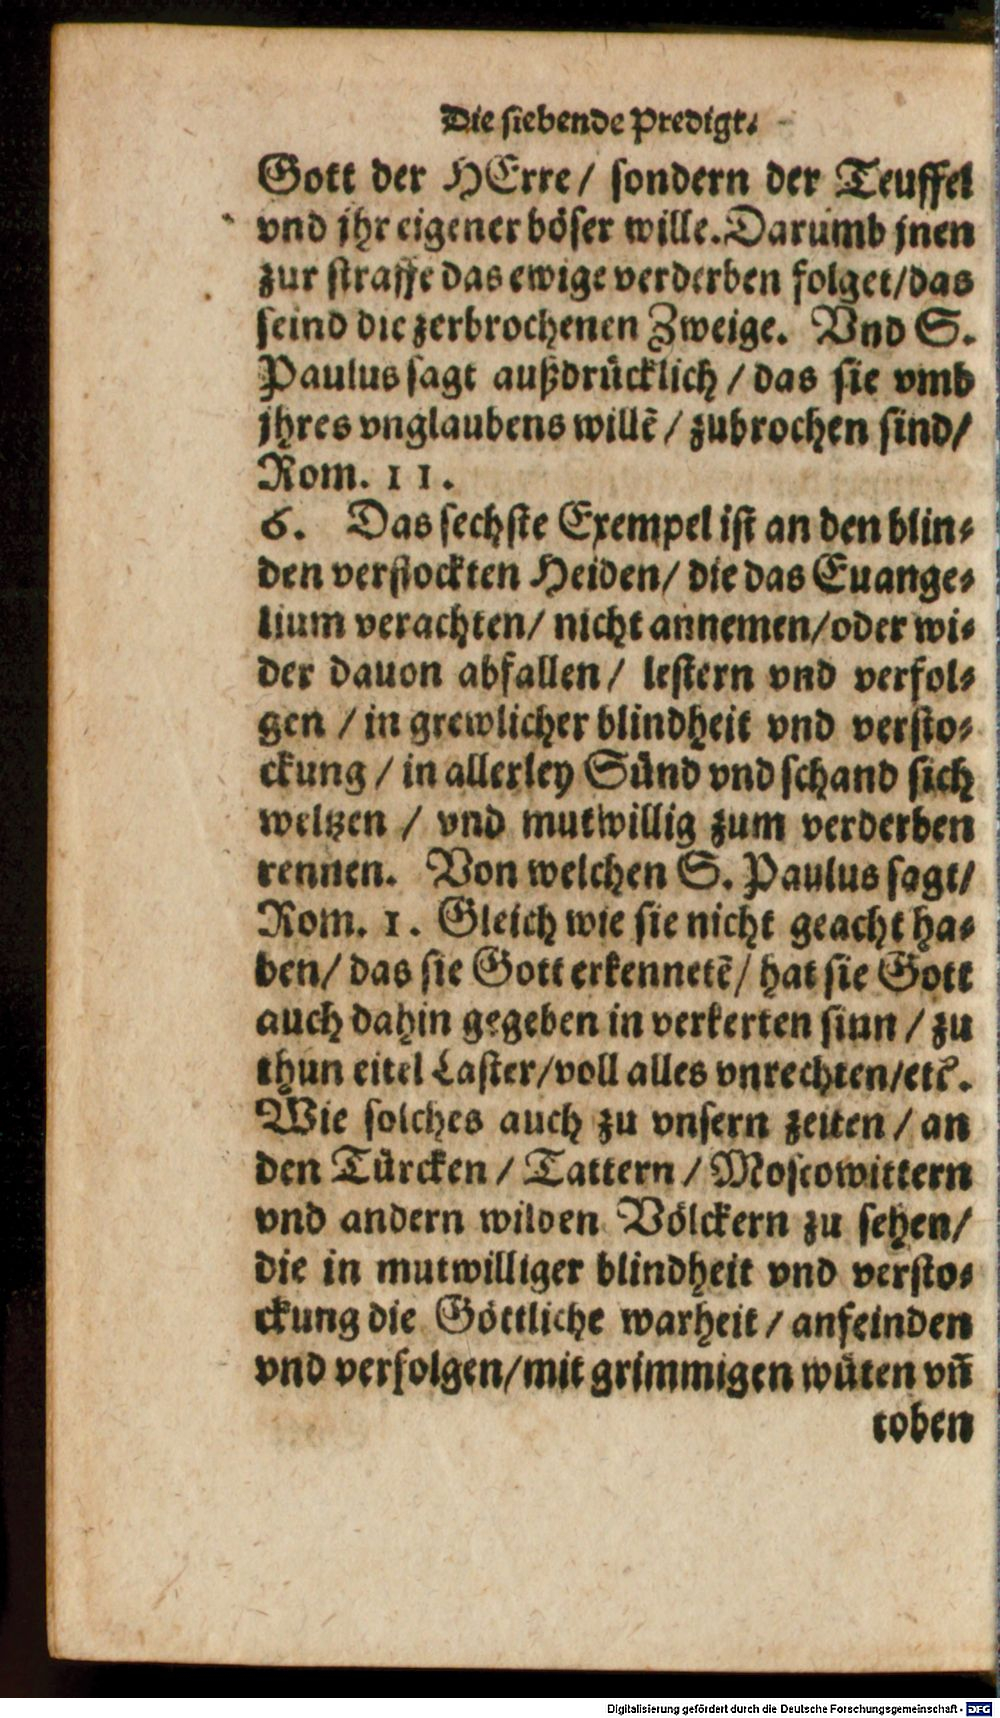 Die siebende Predigt.
Gott der HErre/ sondern der Teuffel
vnd jhr eigener böser wille. Darumb jnen
zur straffe das ewige verderben folget/das
seind die zerbrochenen Zweige. Vnd S.
Paulus sagt außdrücklich / das sie vmb
jhres vnglaubens willẽ / zubrochen sind/
Rom. 11.
6. Das sechste Exempel ist an den blin⸗
den verstockten Heiden/ die das Euange⸗
lium verachten/ nicht annemen/oder wi⸗
der dauon abfallen/ lestern vnd verfol⸗
gen / in grewlicher blindheit vnd versto⸗
ckung / in allerley Sünd vnd schand sich
weltzen / vnd mutwillig zum verderben
rennen. Von welchen S. Paulus sagt/
Rom. 1. Gleich wie sie nicht geacht ha⸗
ben/ das sie Gott erkennetẽ/ hat sie Gott
auch dahin gegeben in verkerten sinn / zu
thun eitel Laster/voll alles vnrechten/etc.
Wie solches auch zu vnsern zeiten / an
den Türcken / Tattern / Moscowittern
vnd andern wilden Völckern zu sehen/
die in mutwilliger blindheit vnd versto⸗
ckung die Göttliche warheit / anfeinden
vnd verfolgen/mit grimmigen wüten vñ
toben
Digitalisierung gefördert durch die Deutsche Forschungsgemeinschaft - DFG